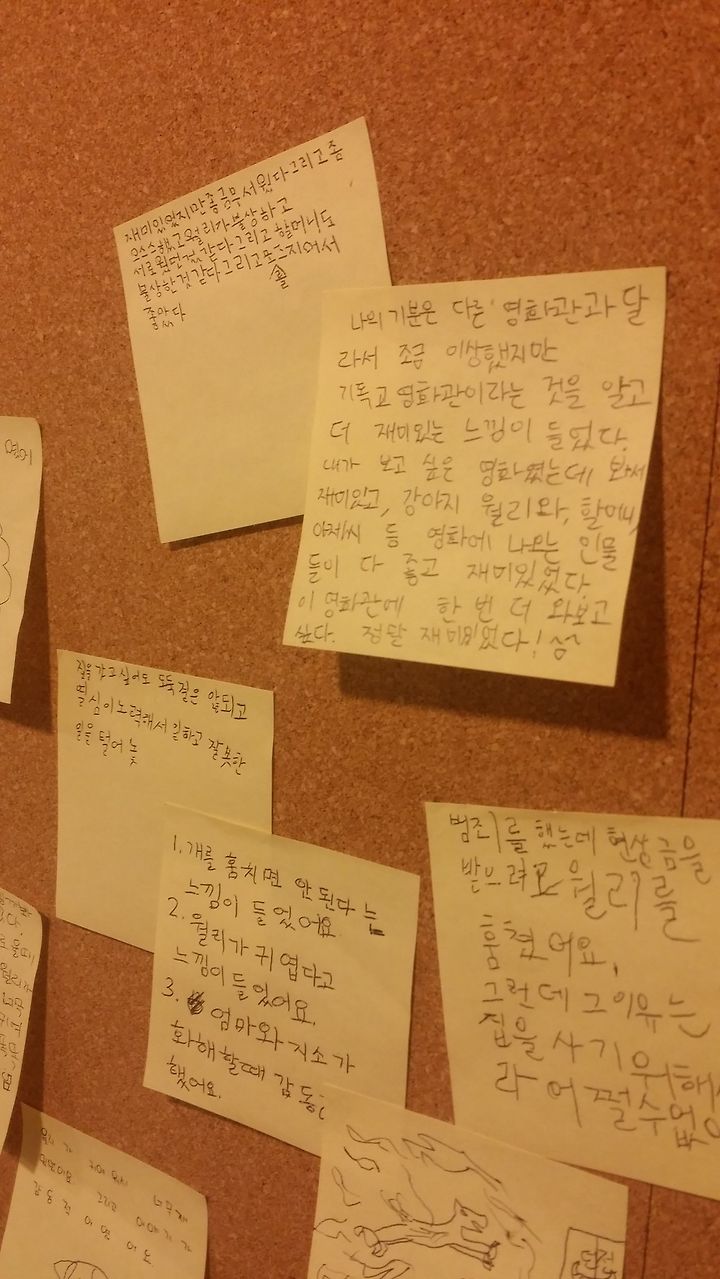 재미있었지만 좀금무서웠다 그리고 좀
오스스했고 월리가 불상하고
서로웠던것같다 그리고 할머니도
불상한것같다 그리고
좋았다
나의 기분은 다른 영화관과 달
라서 조금 이상했지만
기독교 영화관이라는 것을 알고
더 재미있는 느낌이 들었다.
내가 보고 싶은 영화였는데 와서
재미있고, 강아지 월리와, 할머니,
아제씨 등 영화에 나오는 인물
들이 다 좋고 재미있었다.
이 영화관에 한 번 더 와보고
싶다. 정말 재미있었다!
집을 갖고 싶어도 도둑질은 않되고
열심이노력해서 길하고 잘못한
일을 털어 놓
1. 개를 훔치면 안 된다 는
느낌이 들었어요.
2. 월리가 귀엽다고
느낌이 들었어요.
3. 엄마와 지소가
화해할때 감동
했어요.
범죄를 했는데 현상금을
받으려고 월리를
훔쳤어요.
그런데 그이유는
집을 사기위해
라 어쩔수없
월리가 귀여워서 너무재
그리고 이야기가
감동적이였어요